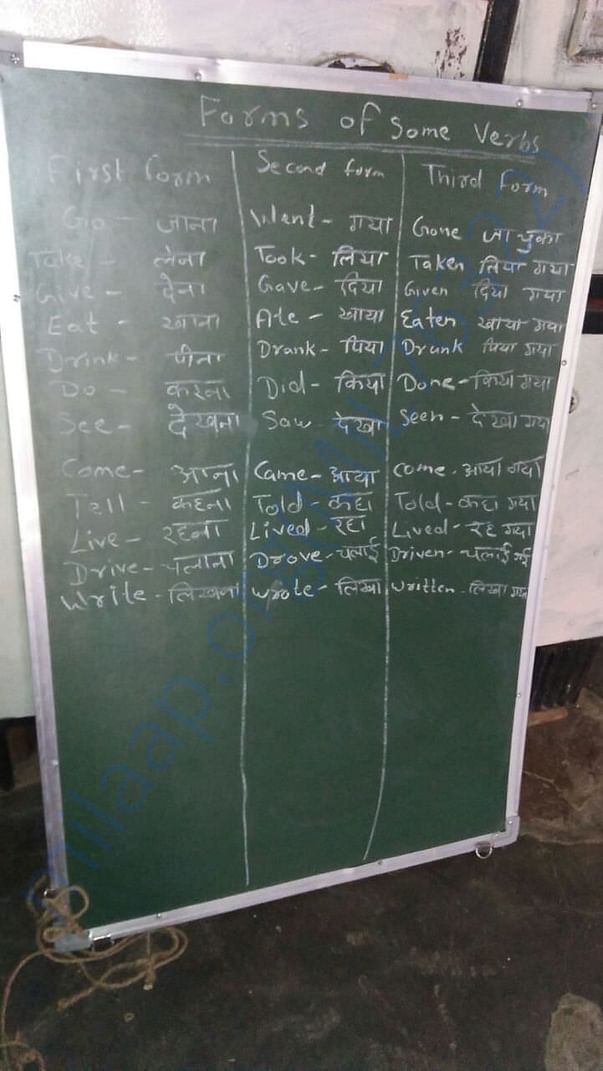 Forms of Some Verbs
First form Second form Third form
Go - जाना Went - गया Gone जा चुका
Take - लेना Took - लिया Taken लिया गया
Give - देना Gave - दिया Given दिया गया
Eat - खाना Ate - खाया Eaten खाया गया
Drink - पीना Drank - पिया Drunk पिया गया
Do - करना Did - किया Done - किया गया
See - देखना Saw - देखा Seen - देखा गया
Come - आना Came - आया Come - आया गया
Tell - कहना Told - कहा Told - कहा गया
Live - रहना Lived - रहा Lived - रह गया
Drive - चलाना Drove - चलाई Driven - चलाई गई
Write - लिखना Wrote - लिखा Written - लिखा गया